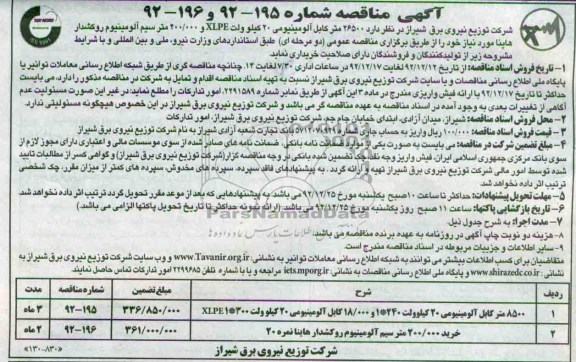 آگهی مناقصه شماره ۱۹۵-۹۲ و ۱۹۶-۹۲
شرکت توزیع نیروی برق شیراز در نظر دارد ۲۶۵۰۰ متر کابل آلومینیومی ۲۰ کیلو ولت XLPE و ۲۰۰/۰۰۰ متر سیم آلومینیوم روکشدار
هاینا مورد نیاز خود را از طریق برگزاری مناقصه عمومی (دو مرحله ای) طبق استانداردهای وزارت نیرو، ملی و بین المللی و با شرایط
مشروحه زیر از تولیدکنندگان و فروشندگان دارای صلاحیت خریداری نماید.
۱- تاریخ فروش اسناد مناقصه: از تاریخ ۹۲/۱۲/۱۲ لغایت ۹۲/۱۲/۱۷ در ساعات اداری ۷/۳۰ لغایت ۱۳. چنانچه مناقصه گری از طریق شبکه اطلاع رسانی معاملات توانیر یا
پایگاه ملی اطلاع رسانی مناقصات و یا سایت شرکت توزیع نیروی برق شیراز نسبت به تهیه اسناد مناقصه اقدام و تمایل به شرکت در مناقصه مذکور را دارد، می بایست
حداکثر تا تاریخ ۹۲/۱۲/۱۷ با ارائه فیش واریزی مندرج در ماده ۳ این آگهی از طریق نمابر شماره ۲۲۹۱۵۸۹ امور تدارکات را مطلع نماید در غیر این صورت مسئولیت عدم
آگاهی از تغییرات بعدی به وجود آمده در اسناد مناقصه به عهده مناقصه گر می باشد و شرکت توزیع نیروی برق شیراز در این خصوص هیچگونه مسئولیتی ندارد.
۲- محل فروش اسناد مناقصه: شیراز، میدان آزادی، ابتدای خیابان جام جم، شرکت توزیع نیروی برق شیراز، امور تدارکات
۳- قیمت فروش اسناد مناقصه: ۱۰۰/۰۰۰ ریال واریز به حساب جاری شماره بانک تجارت شعبه آزادی شیراز به نام شرکت توزیع نیروی برق شیراز
۴- مبلغ تضمین شرکت در مناقصه: می بایست به صورت یکی از موارد ضمانت نامه بانکی، ضمانت نامه های صادر شده از سوی موسسات مالی و اعتباری دارای مجوز لازم از
سوی بانک مرکزی جمهوری اسلامی ایران، فیش واریز وجه نقد، چک تضمین شده بانکی در وجه مناقصه گزار (شرکت توزیع نیروی برق شیراز) و گواهی کسر از مطالبات تایید
شده توسط امور مالی شرکت توزیع نیروی برق شیراز تهیه و ارائه گردد. به پیشنهادهای فاقد سپرده، سپرده های مخدوش، سپرده های کمتر از میزان مقرر، چک شخصی
ترتیب اثر داده نخواهد شد
۵- مهلت تحویل پیشنهادات: حداکثر تا ساعت ۱۰ صبح یکشنبه مورخ ۹۲/۱۲/۲۵ می باشد. به پیشنهادهایی که بعد از موعد مقرر تحویل گردد ترتیب اثر داده نخواهد شد.
۶- تاریخ بازگشایی پاکتها: ساعت ۱۱ صبح روز یکشنبه مورخ ۹۲/۱۲/۲۵ می باشد. (ارائه نمونه حداکثر تا تاریخ تحویل پاکتها الزامی می باشد.)
۷- مدت اجرا: به شرح جدول ذیل.
۸- هزینه دو نوبت چاپ آگهی در روزنامه به عهده برنده مناقصه می باشد.
۹- سایر اطلاعات و جزییات مربوطه در اسناد مناقصه مندرج است.
متقاضیان برای کسب اطلاعات بیشتر می توانند به شبکه اطلاع رسانی معاملات توانیر به نشانی: www.Tavanir.org.ir و وب سایت شرکت توزیع نیروی برق شیراز به
نشانی: www.shirazedc.co.ir و پایگاه ملی اطلاع رسانی مناقصات به نشانی: iets.mporg.ir مراجعه و یا با شماره تلفن ۲۲۹۹۶۸۵ امور تدارکات تماس حاصل نمایند.
ردیف شرح مبلغ تضمین شماره مناقصه مدت
۱ ۸۵۰۰ متر کابل آلومینیومی ۲۰ کیلوولت ۲۴۰*۱ و ۱۸/۰۰۰ کابل آلومینیومی ۲۰ کیلوولت ۳۰۰*۱ XLPE ۳۳۶/۸۵۰/۰۰۰ ۹۲-۱۹۵ ۳ ماه
۲ خرید ۲۰۰/۰۰۰ متر سیم آلومینیوم روکشدار هاینا نمره ۲۰ ۳۶۱/۰۰۰/۰۰۰ ۹۲-۱۹۶ ۲ ماه
شرکت توزیع نیروی برق شیراز
«۱۳۰-۸۳۰»
ParsNamadData